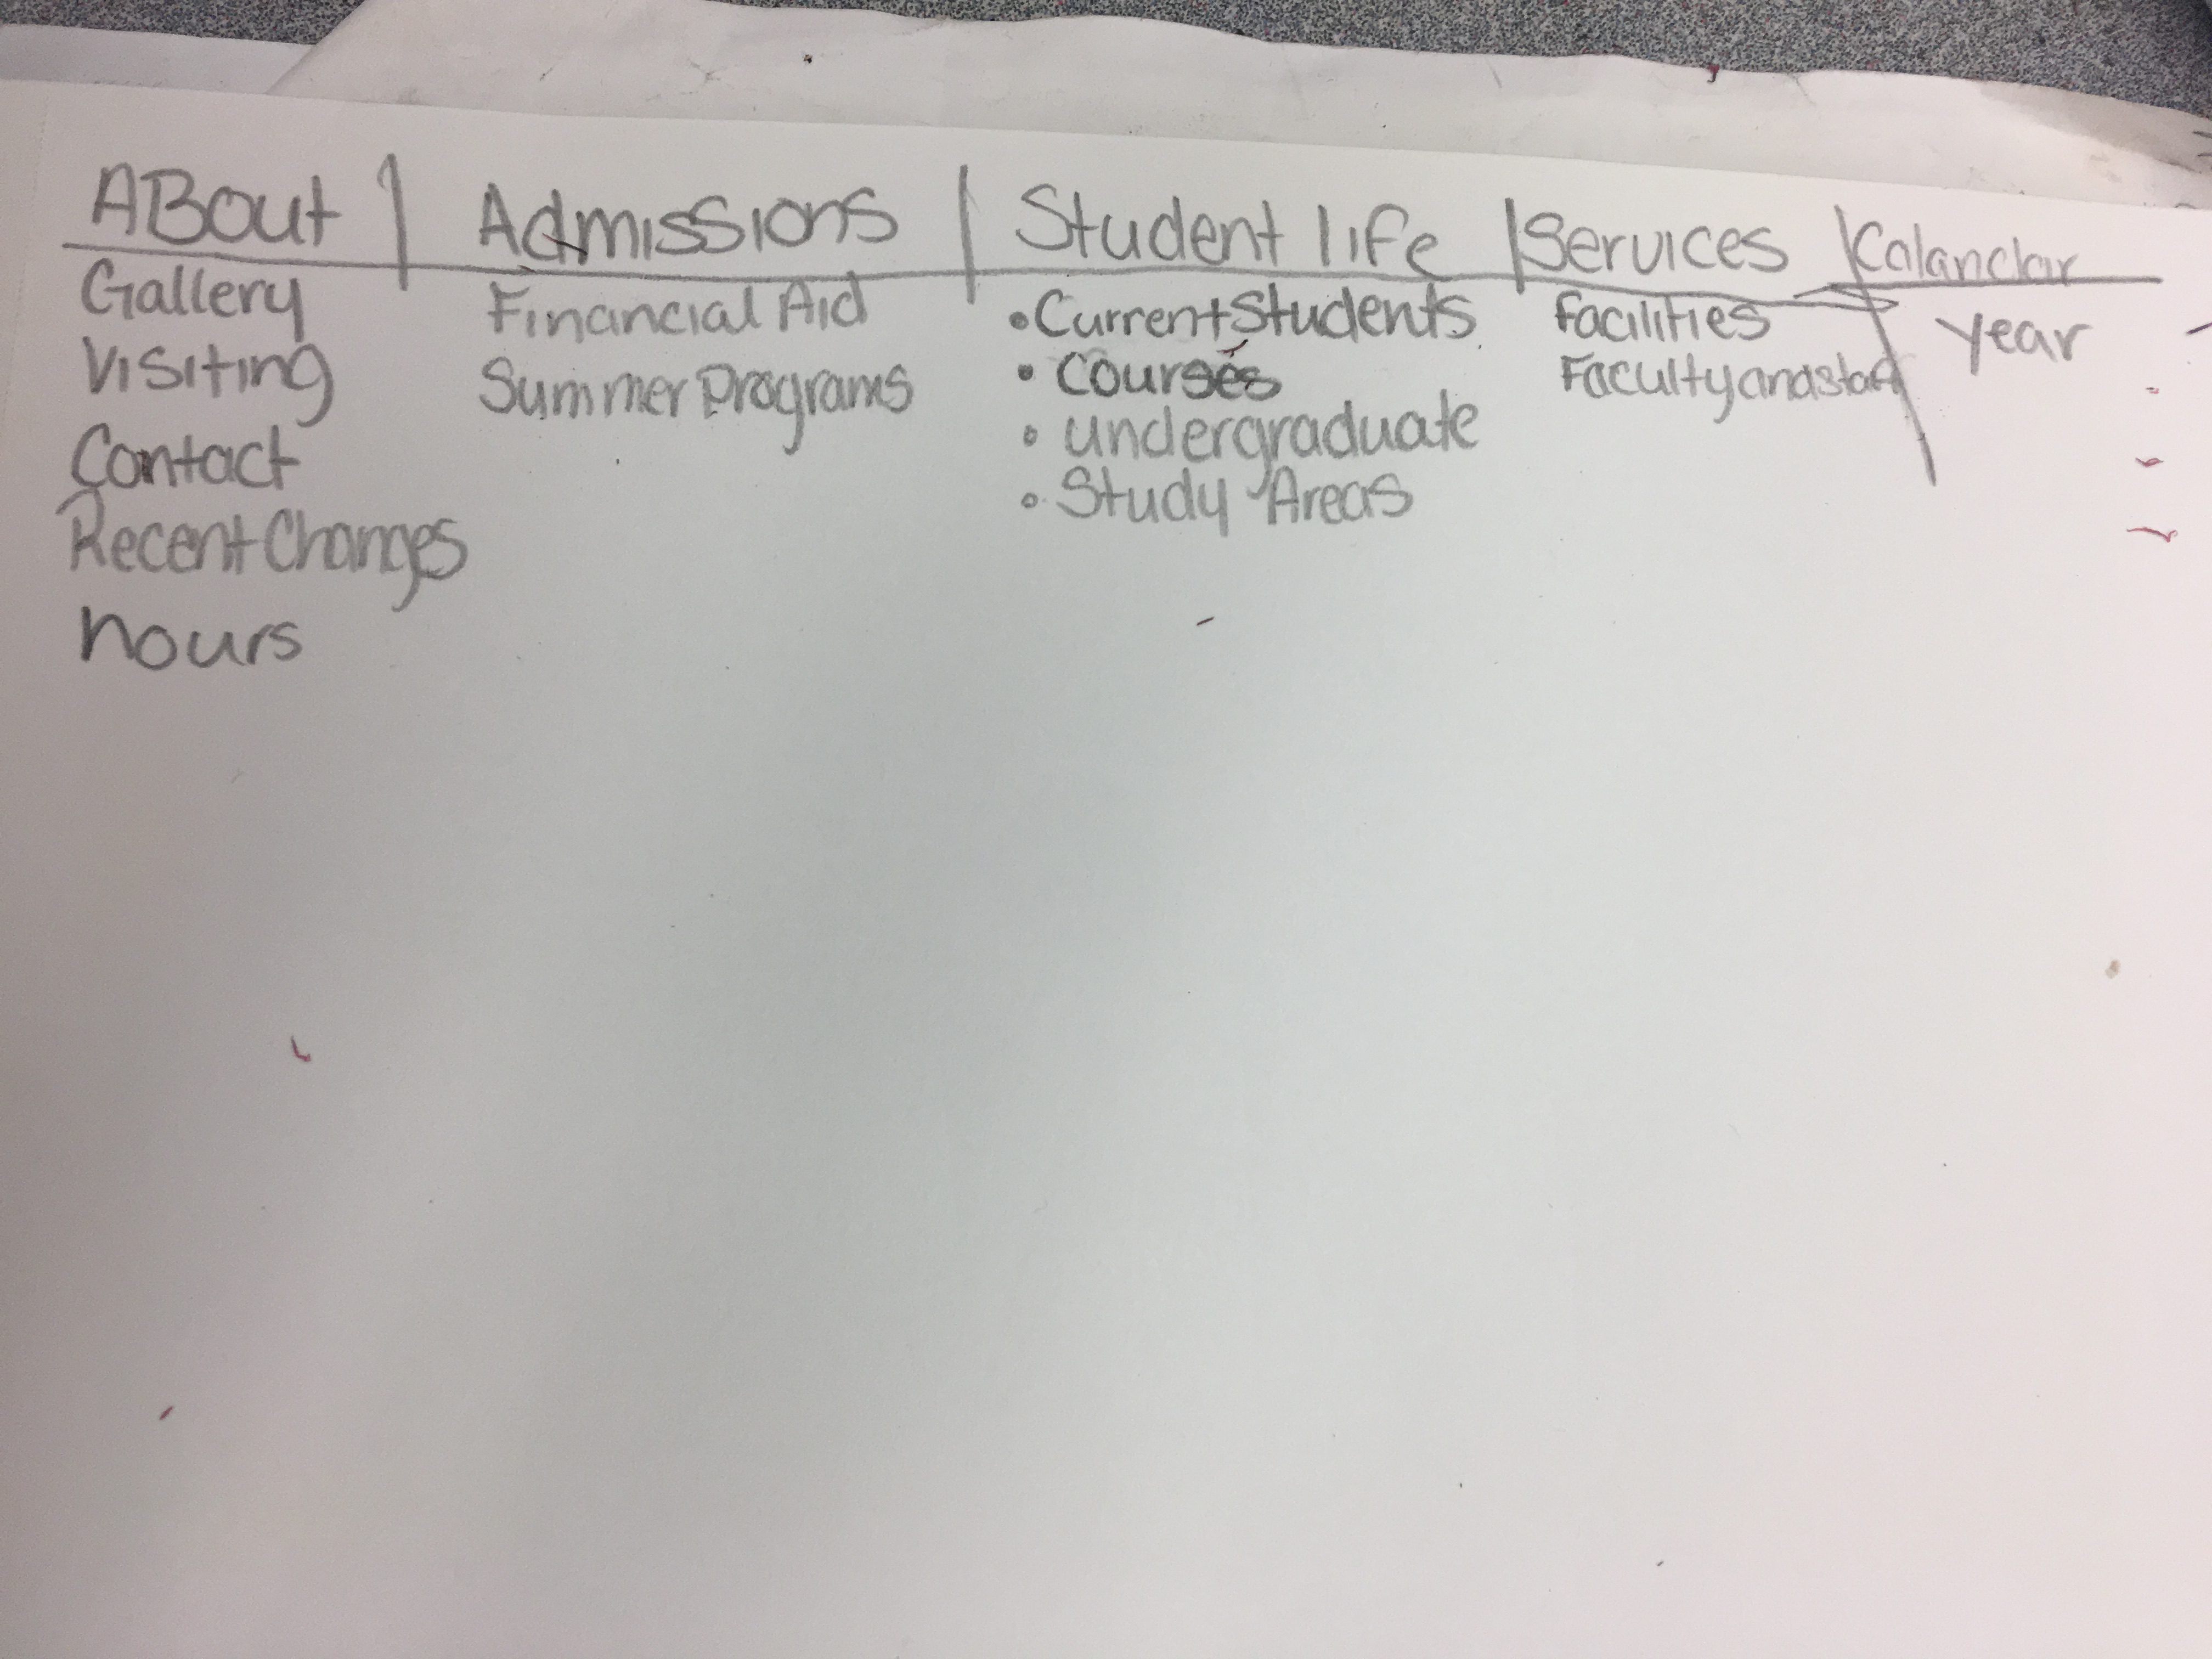 ABout | Admissions | Student life | Services | Calandar
Gallery
Visiting
Contact
Recent Changes
hours
Financial Aid
Summer Programs
• Current Students
• Courses
• undergraduate
• Study Areas
facilities
Faculty and staff
year